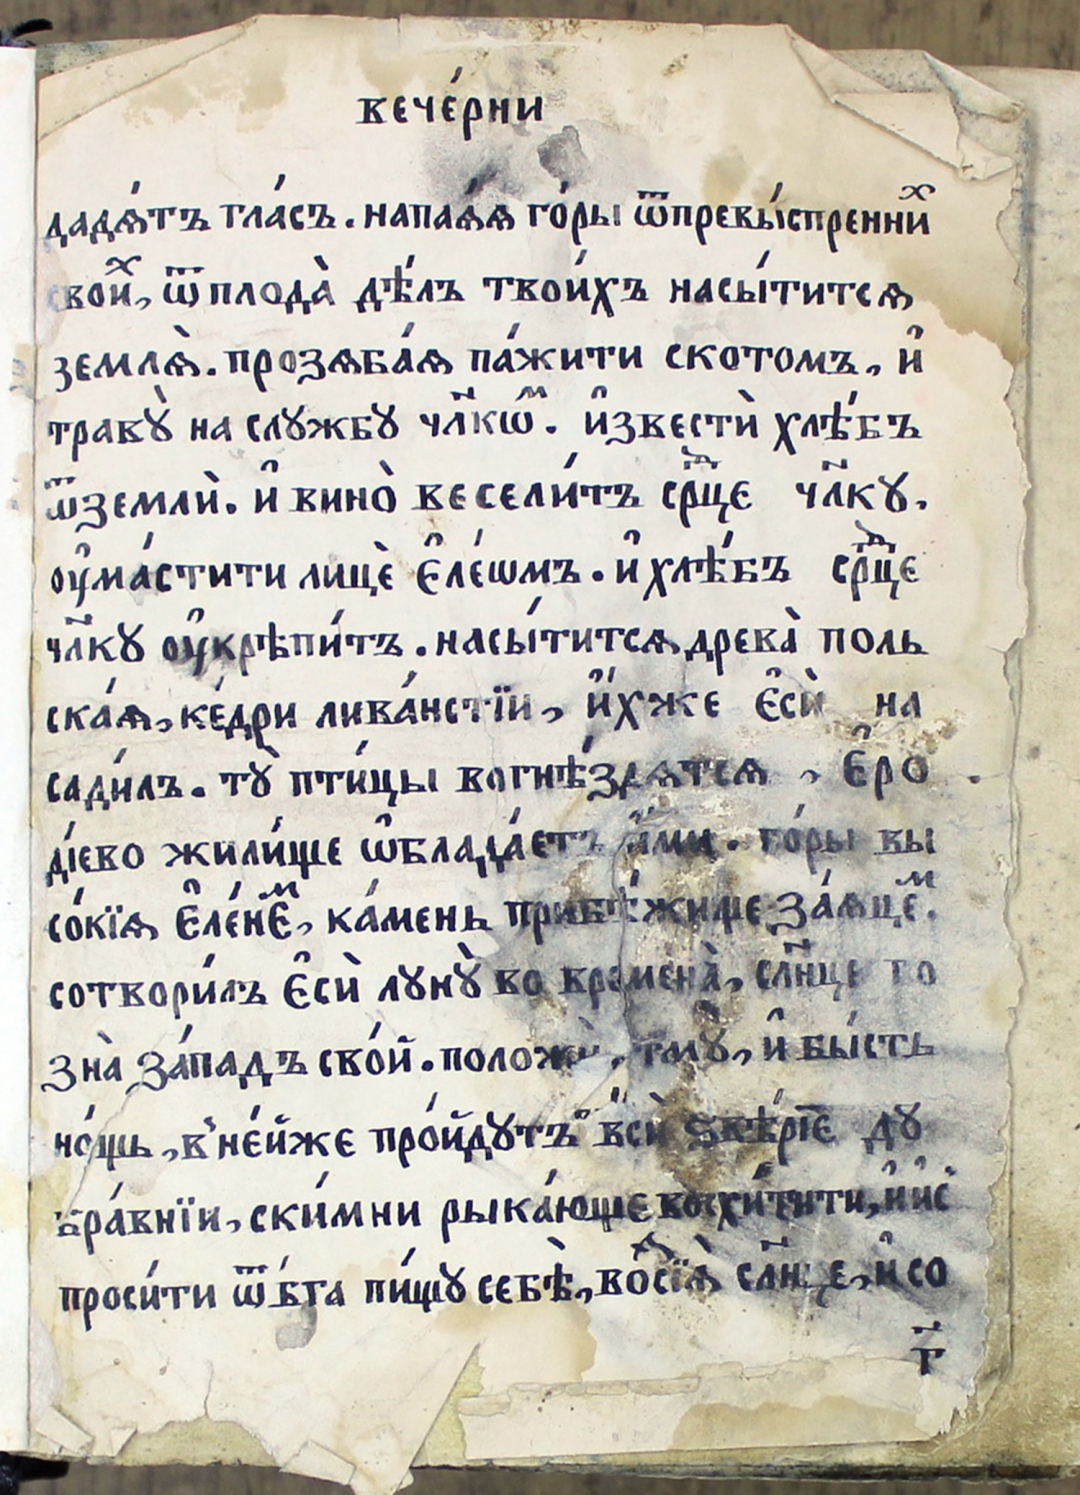 вече́рни
дадѧ́тъ гла́съ. напаѧ́ѧ го́ры ѿпревы́спреннихⷯ
свои́ⷯ, ѿплода̀ дѣ́лъ твои́хъ насы́титсѧ
землѧ̀. прозѧба́ѧ па́жити скотомъ, и҆
траву̀ на службу чл҃кѡⷨ. и҆звестѝ хлѣ́бъ
ѿземлѝ. и҆ вино̀ весели́тъ срⷣце чл҃ку.
оу҆ма́стити лицѐ є҆ле́ѡмъ. и҆ хлѣ́бъ срⷣце
чл҃ку оу҆крѣпи́тъ. насы́титсѧ древа̀ поль
ска́ѧ, ке́дри лива́нстїи, и҆́хже є҆сѝ на
сади́лъ. ту̀ пти́цы вогнѣ́здѧтсѧ, є҆ро
ді́ево жили́ще ѡ҆блада́етъ и҆́ми. го́ры вы
со́кїѧ є҆ле́нє҆ⷨ, ка́мень прибѣ́жище за́ѧцєⷨ.
сотвори́лъ є҆сѝ луну̀ во времена̀, сл҃нце по
зна̀ за́падъ сво́й. положѝ, тму̀, и҆ бы́сть
но́щь, в̾не́йже про́йдутъ всѝ ѕвѣ́рїе ду
бра́внїи, ски́мни рыка́юще восхи́тити, и҆ и҆с̾
проси́ти ѿ бг҃а пи́щу себѣ̀, во́сїѧ̀ сл҃нце, и҆ со
г҃